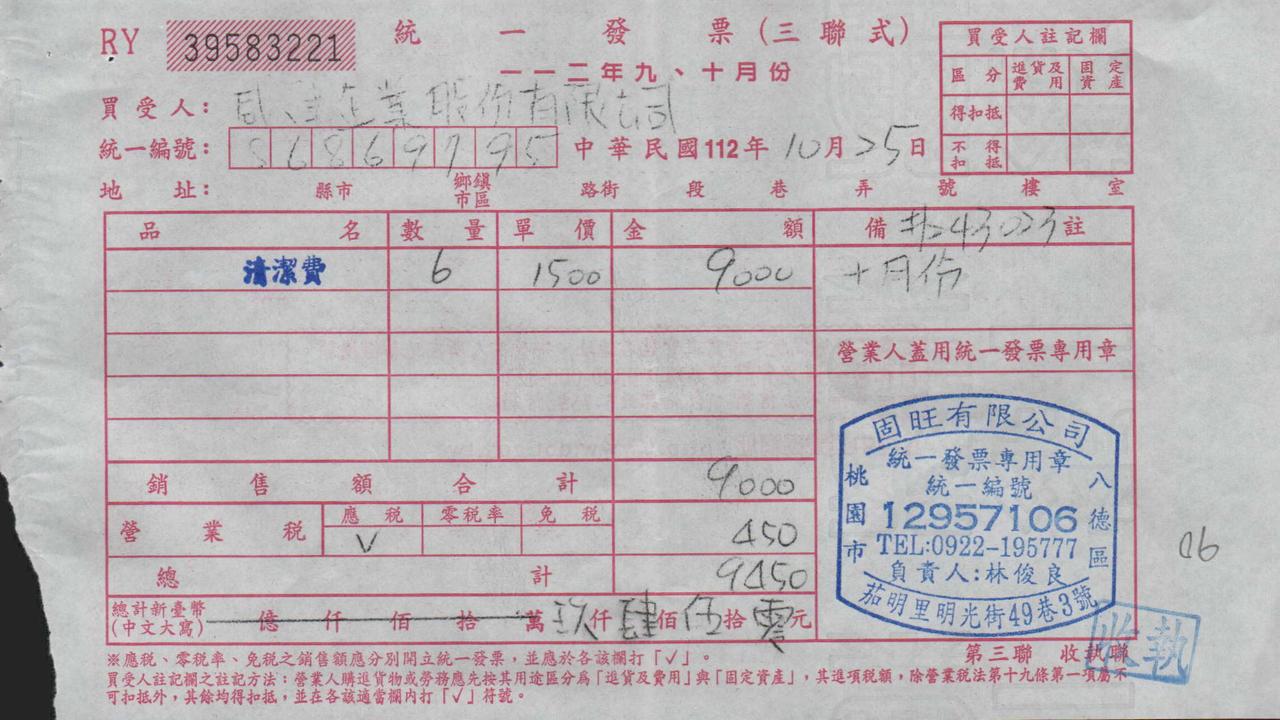 RY 39583221
統一發票(三聯式)
一一二年九、十月份
買受人註記欄
區分 進貨及費用 固定資產
得扣抵
不得扣抵
買受人: 企業股份有限公司
統一編號: 86869795 中華民國112年10月25日
地址: 縣市 鄉鎮市區 路街 段 巷 弄 號 樓 室
品名 數量 單價 金額 備註 #243023
清潔費 6 1500 9000 十月份
營業人蓋用統一發票專用章
銷售額合計 9000
營業稅 應稅 零稅率 免稅
V 450
總計 9450
總計新臺幣(中文大寫) 億仟佰拾萬玖仟肆佰伍拾零元
固旺有限公司
統一發票專用章
統一編號
12957106
TEL:0922-195777
負責人:林俊良
桃園市
八德區
茄明里明光街49巷3號
06
第三聯 收執聯
收執
※應稅、零稅率、免稅之銷售額應分別開立統一發票,並應於各該欄打「✓」。
買受人註記欄之註記方法:營業人購進貨物或勞務應先按其用途區分為「進貨及費用」與「固定資產」,其進項稅額,除營業稅法第十九條第一項屬不
可扣抵外,其餘均得扣抵,並在各該適當欄內打「✓」符號。